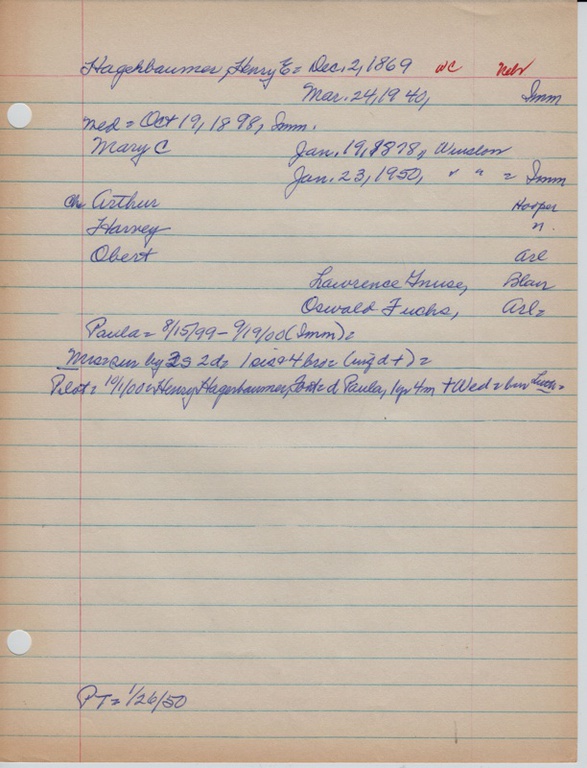 Hagenbaumer, Henry E = Dec. 2, 1869 WC Nebr
Mar. 24, 1940, Imm
med = Oct 19, 1898, Imm.
Mary C Jan. 19, 1878, Winslow
Jan. 23, 1950, " " = Imm
Ch Arthur Hooper
Harvey n.
Obert Arl
Lawrence Gnuse, Blair
Oswald Fuchs, Arl=
Paula = 8/15/99 - 9/19/00 (Imm) =
by 3s 2d = 1 sis + 4 bro =
Pilot = 10/1/00 = Henry Hagenbaumer, = d Paula, 1 yr 4m + Wed = bur Luth =
PT = 1/26/50